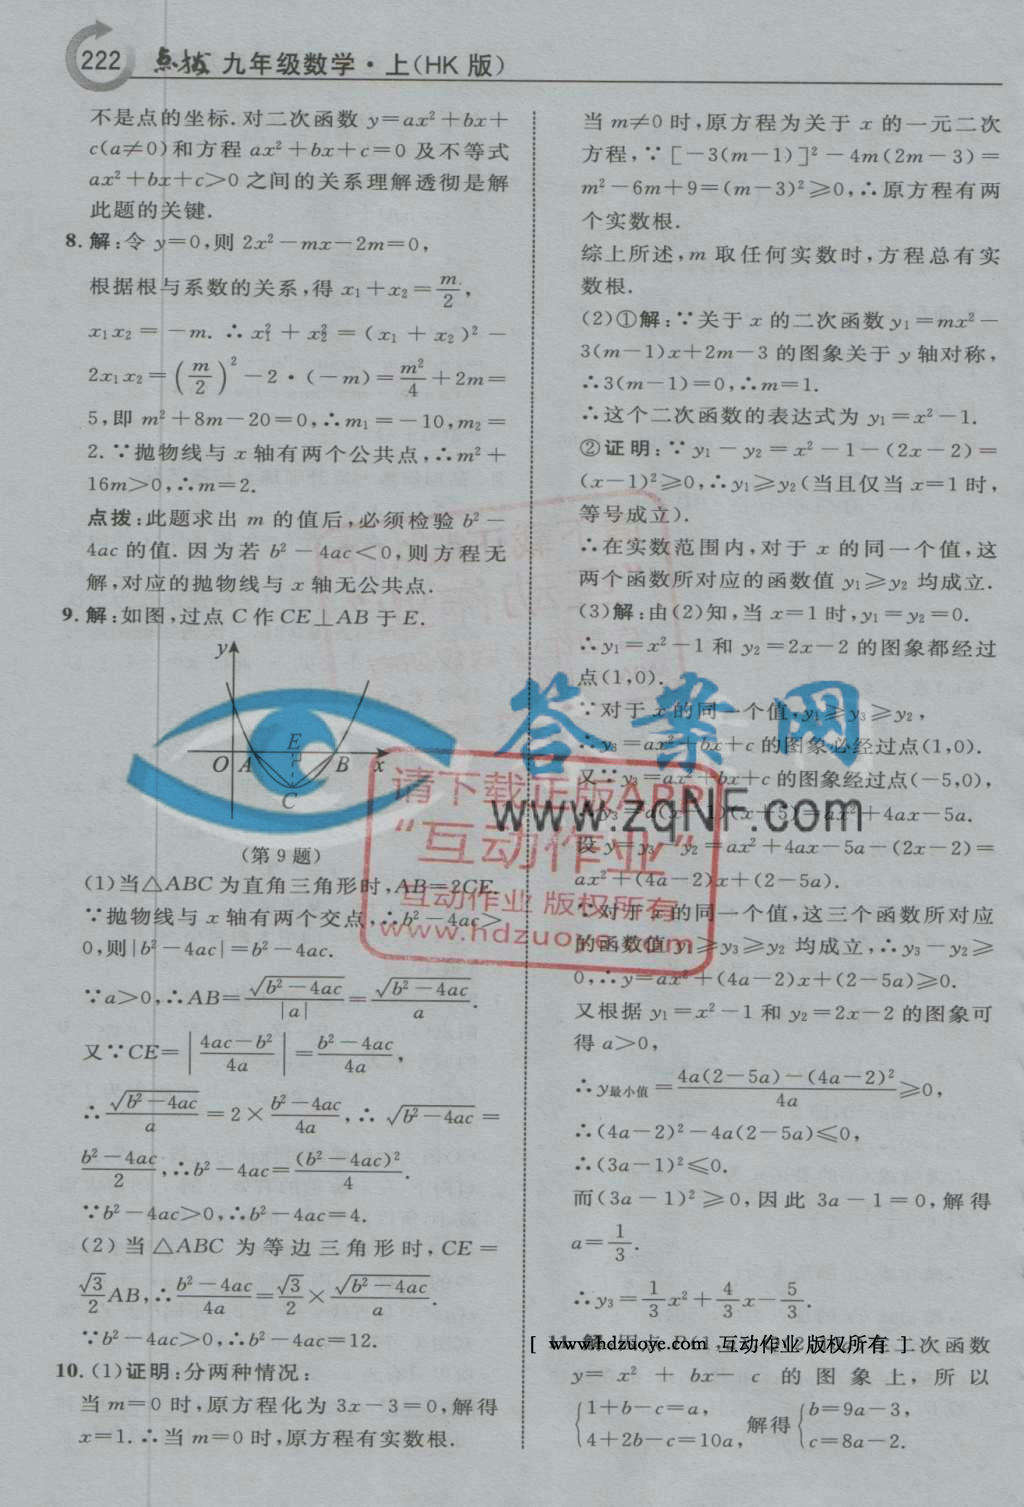 222 点拨 九年级数学·上(HK版)
不是点的坐标.对二次函数 y=ax²+bx+
c(a≠0)和方程 ax²+bx+c=0 及不等式
ax²+bx+c>0 之间的关系理解透彻是解
此题的关键.
8.解:令 y=0,则 2x²-mx-2m=0,
根据根与系数的关系,得 x₁+x₂=m/2,
x₁x₂=-m.∴x₁²+x₂²=(x₁+x₂)²-
2x₁x₂=(m/2)²-2·(-m)=m²/4+2m=
5,即 m²+8m-20=0,∴m₁=-10,m₂=
2.∵抛物线与 x 轴有两个公共点,∴m²+
16m>0,∴m=2.
点拨:此题求出 m 的值后,必须检验 b²-
4ac 的值.因为若 b²-4ac<0,则方程无
解,对应的抛物线与 x 轴无公共点.
9.解:如图,过点 C 作 CE⊥AB 于 E.
y
E
O A B x
C
(第 9 题)
(1)当△ABC 为直角三角形时,AB=2CE.
∵抛物线与 x 轴有两个交点,∴b²-4ac>
0,则|b²-4ac|=b²-4ac.
∵a>0,∴AB=√(b²-4ac)/|a|=√(b²-4ac)/a.
又∵CE=|(4ac-b²)/4a|=(b²-4ac)/4a,
∴√(b²-4ac)/a=2×(b²-4ac)/4a,∴√(b²-4ac)=
(b²-4ac)/2,∴b²-4ac=(b²-4ac)²/4.
∵b²-4ac>0,∴b²-4ac=4.
(2)当△ABC 为等边三角形时,CE=
√3/2 AB,∴(b²-4ac)/4a=√3/2×√(b²-4ac)/a.
∵b²-4ac>0,∴b²-4ac=12.
10.(1)证明:分两种情况:
当 m=0 时,原方程化为 3x-3=0,解得
x=1.∴当 m=0 时,原方程有实数根.
当 m≠0 时,原方程为关于 x 的一元二次
方程,∵[-3(m-1)]²-4m(2m-3)=
m²-6m+9=(m-3)²≥0,∴原方程有两
个实数根.
综上所述,m 取任何实数时,方程总有实
数根.
(2)①解:∵关于 x 的二次函数 y₁=mx²-
3(m-1)x+2m-3 的图象关于 y 轴对称,
∴3(m-1)=0,∴m=1.
∴这个二次函数的表达式为 y₁=x²-1.
②证明:∵y₁-y₂=x²-1-(2x-2)=
(x-1)²≥0,∴y₁≥y₂(当且仅当 x=1 时,
等号成立).
∴在实数范围内,对于 x 的同一个值,这
两个函数所对应的函数值 y₁≥y₂ 均成立.
(3)解:由(2)知,当 x=1 时,y₁=y₂=0.
∴y₁=x²-1 和 y₂=2x-2 的图象都经过
点(1,0).
∵对于 x 的同一个值,y₁≥y₃≥y₂,
∴y₃=ax²+bx+c 的图象必经过点(1,0).
又∵y₃=ax²+bx+c 的图象经过点(-5,0),
y₃=a(x-1)(x+5)=ax²+4ax-5a.
设 y=y₃-y₂=ax²+4ax-5a-(2x-2)=
ax²+(4a-2)x+(2-5a).
∵对于 x 的同一个值,这三个函数所对应
的函数值 y₁≥y₃≥y₂ 均成立,∴y₃-y₂≥
0,∴y=ax²+(4a-2)x+(2-5a)≥0.
又根据 y₁=x²-1 和 y₂=2x-2 的图象可
得 a>0,
∴y最小值=(4a(2-5a)-(4a-2)²)/4a≥0,
∴(4a-2)²-4a(2-5a)≤0,
∴(3a-1)²≤0.
而(3a-1)²≥0,因此 3a-1=0,解得
a=1/3.
∴y₃=1/3x²+4/3x-5/3.
二次函数
y=x²+bx-c 的图象上,所以
{1+b-c=a, 4+2b-c=10a, 解得{b=9a-3, c=8a-2.
答案网
www.zqNF.com
请下载正版APP
“互动作业”
互动作业 版权所有
www.hdzuoye.com
[ www.hdzuoye.com 互动作业 版权所有 ]